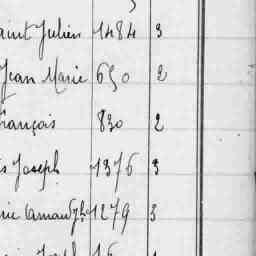 aint Julien 1484 3
Jean Marie 650 2
François 830 2
s Joseph 1376 3
rie 1279 3